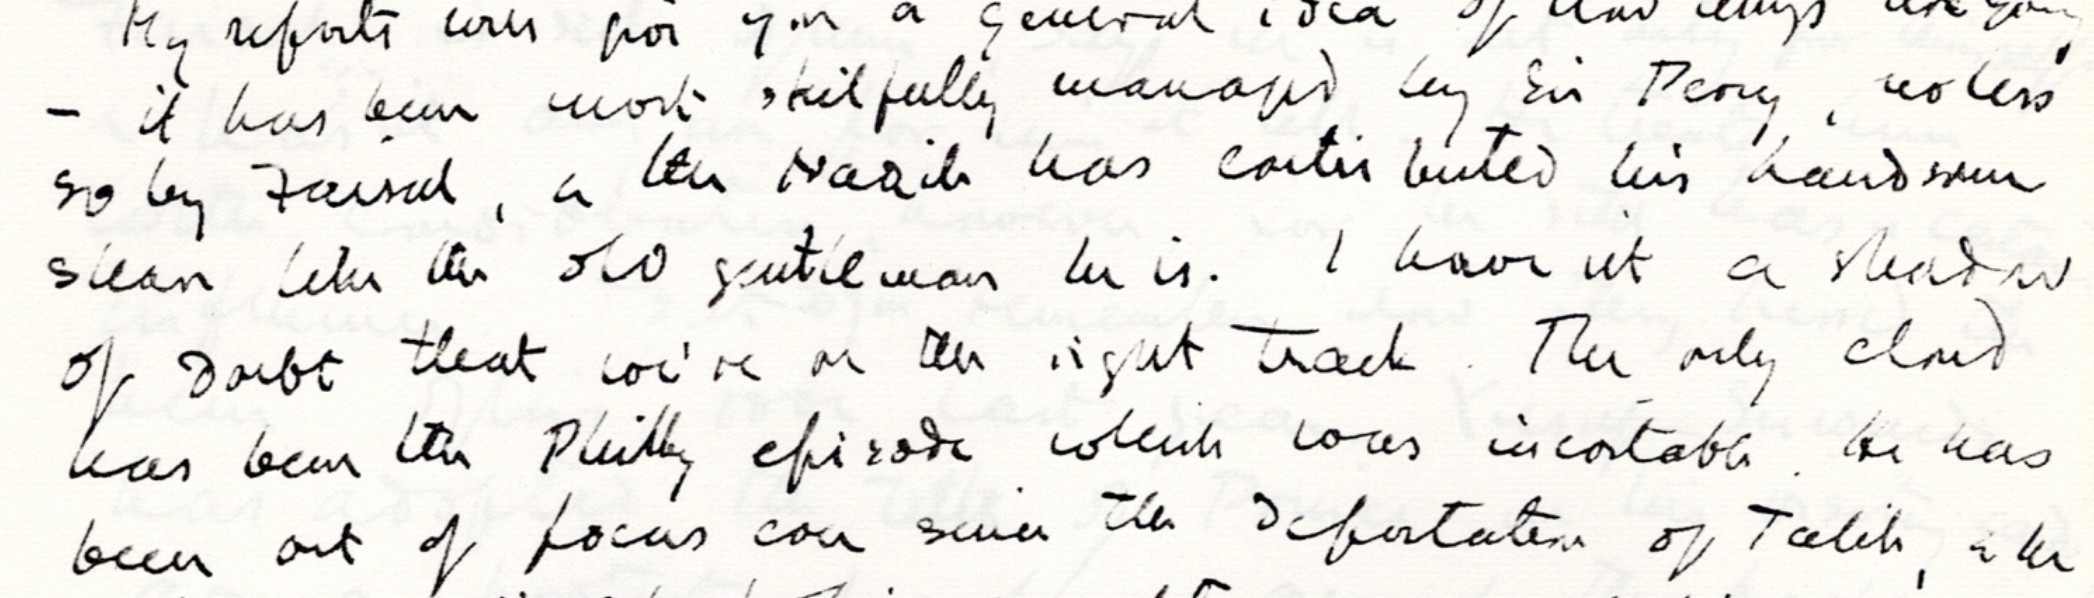 My reports will give you a general idea of how things are going
- it has been most skilfully managed by Sir Percy, no less
so by Faisal, & the Naqib has contributed his handsome
share like the old gentleman he is. I haven't a shadow
of doubt that we're on the right track. The only cloud
has been the Philby episode which was inevitable. He has
been out of focus ever since the deportation of Talib, & he